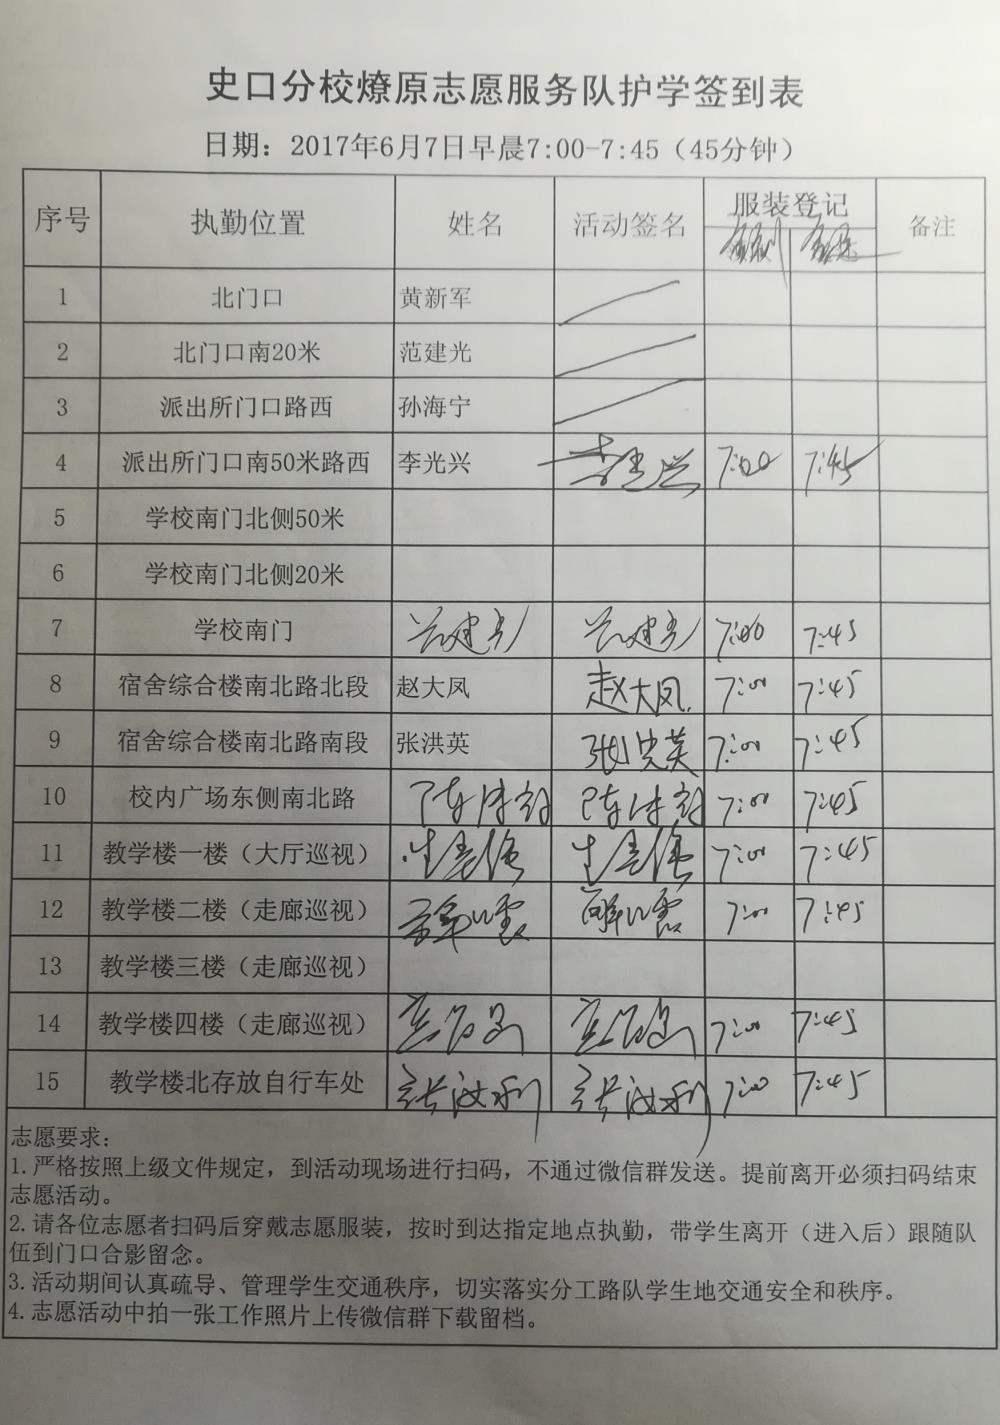 史口分校燎原志愿服务队护学签到表
日期：2017年6月7日早晨7:00-7:45（45分钟）
序号 执勤位置 姓名 活动签名 服装登记 备注
1 北门口 黄新军
2 北门口南20米 范建光
3 派出所门口路西 孙海宁
4 派出所门口南50米路西 李光兴 李光兴 7:00 7:45
5 学校南门北侧50米
6 学校南门北侧20米
7 学校南门 7:00 7:45
8 宿舍综合楼南北路北段 赵大凤 赵大凤 7:00 7:45
9 宿舍综合楼南北路南段 张洪英 张洪英 7:00 7:45
10 校内广场东侧南北路 7:00 7:45
11 教学楼一楼（大厅巡视） 7:00 7:45
12 教学楼二楼（走廊巡视） 7:00 7:45
13 教学楼三楼（走廊巡视）
14 教学楼四楼（走廊巡视） 7:00 7:45
15 教学楼北存放自行车处 7:00 7:45
志愿要求：
1.严格按照上级文件规定，到活动现场进行扫码，不通过微信群发送。提前离开必须扫码结束
志愿活动。
2.请各位志愿者扫码后穿戴志愿服装，按时到达指定地点执勤，带学生离开（进入后）跟随队
伍到门口合影留念。
3.活动期间认真疏导、管理学生交通秩序，切实落实分工路队学生地交通安全和秩序。
4.志愿活动中拍一张工作照片上传微信群下载留档。